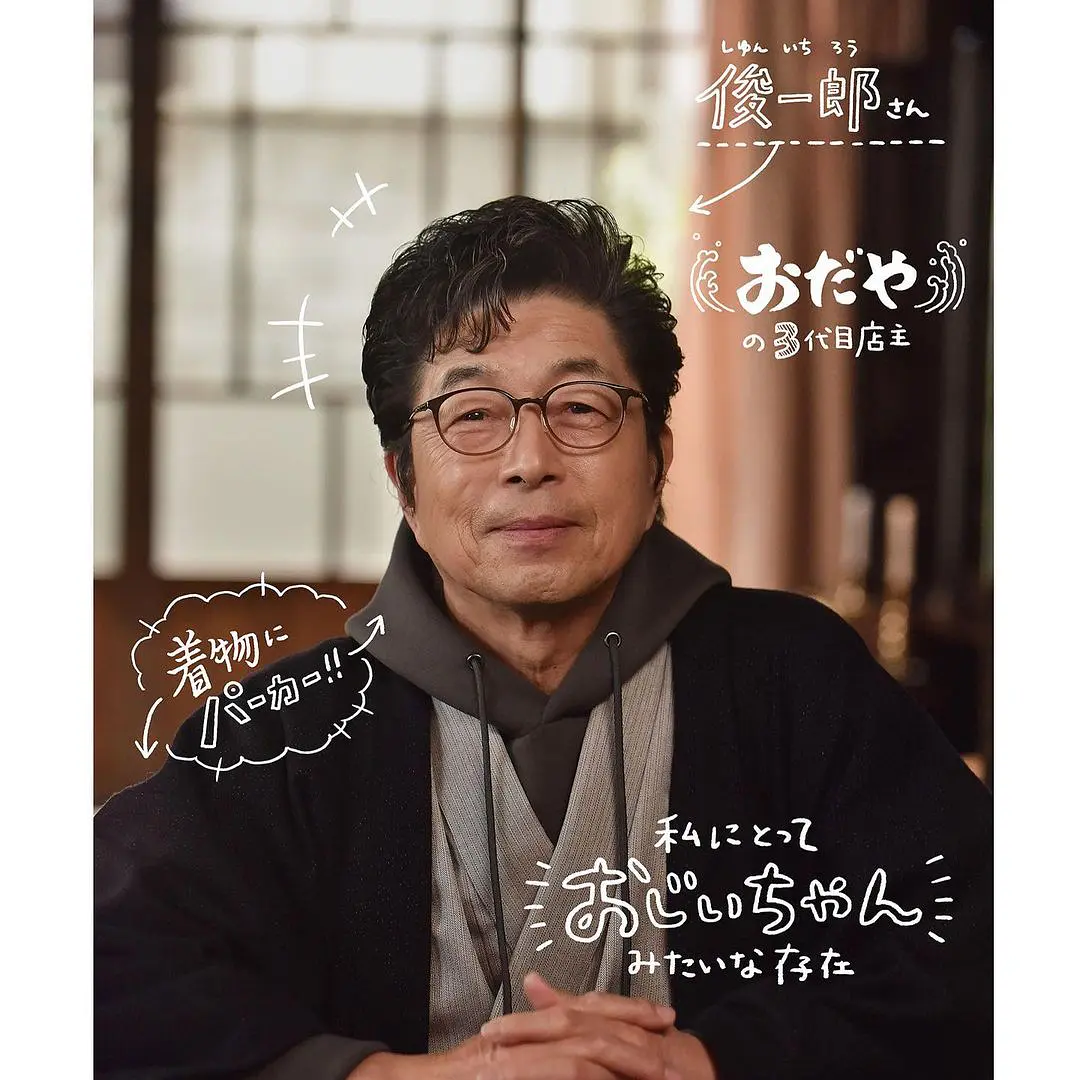 しゅん いち ろう
俊一郎さん
おだや
の3代目店主
着物に
パーカー!!
私にとって
おじいちゃん
みたいな存在